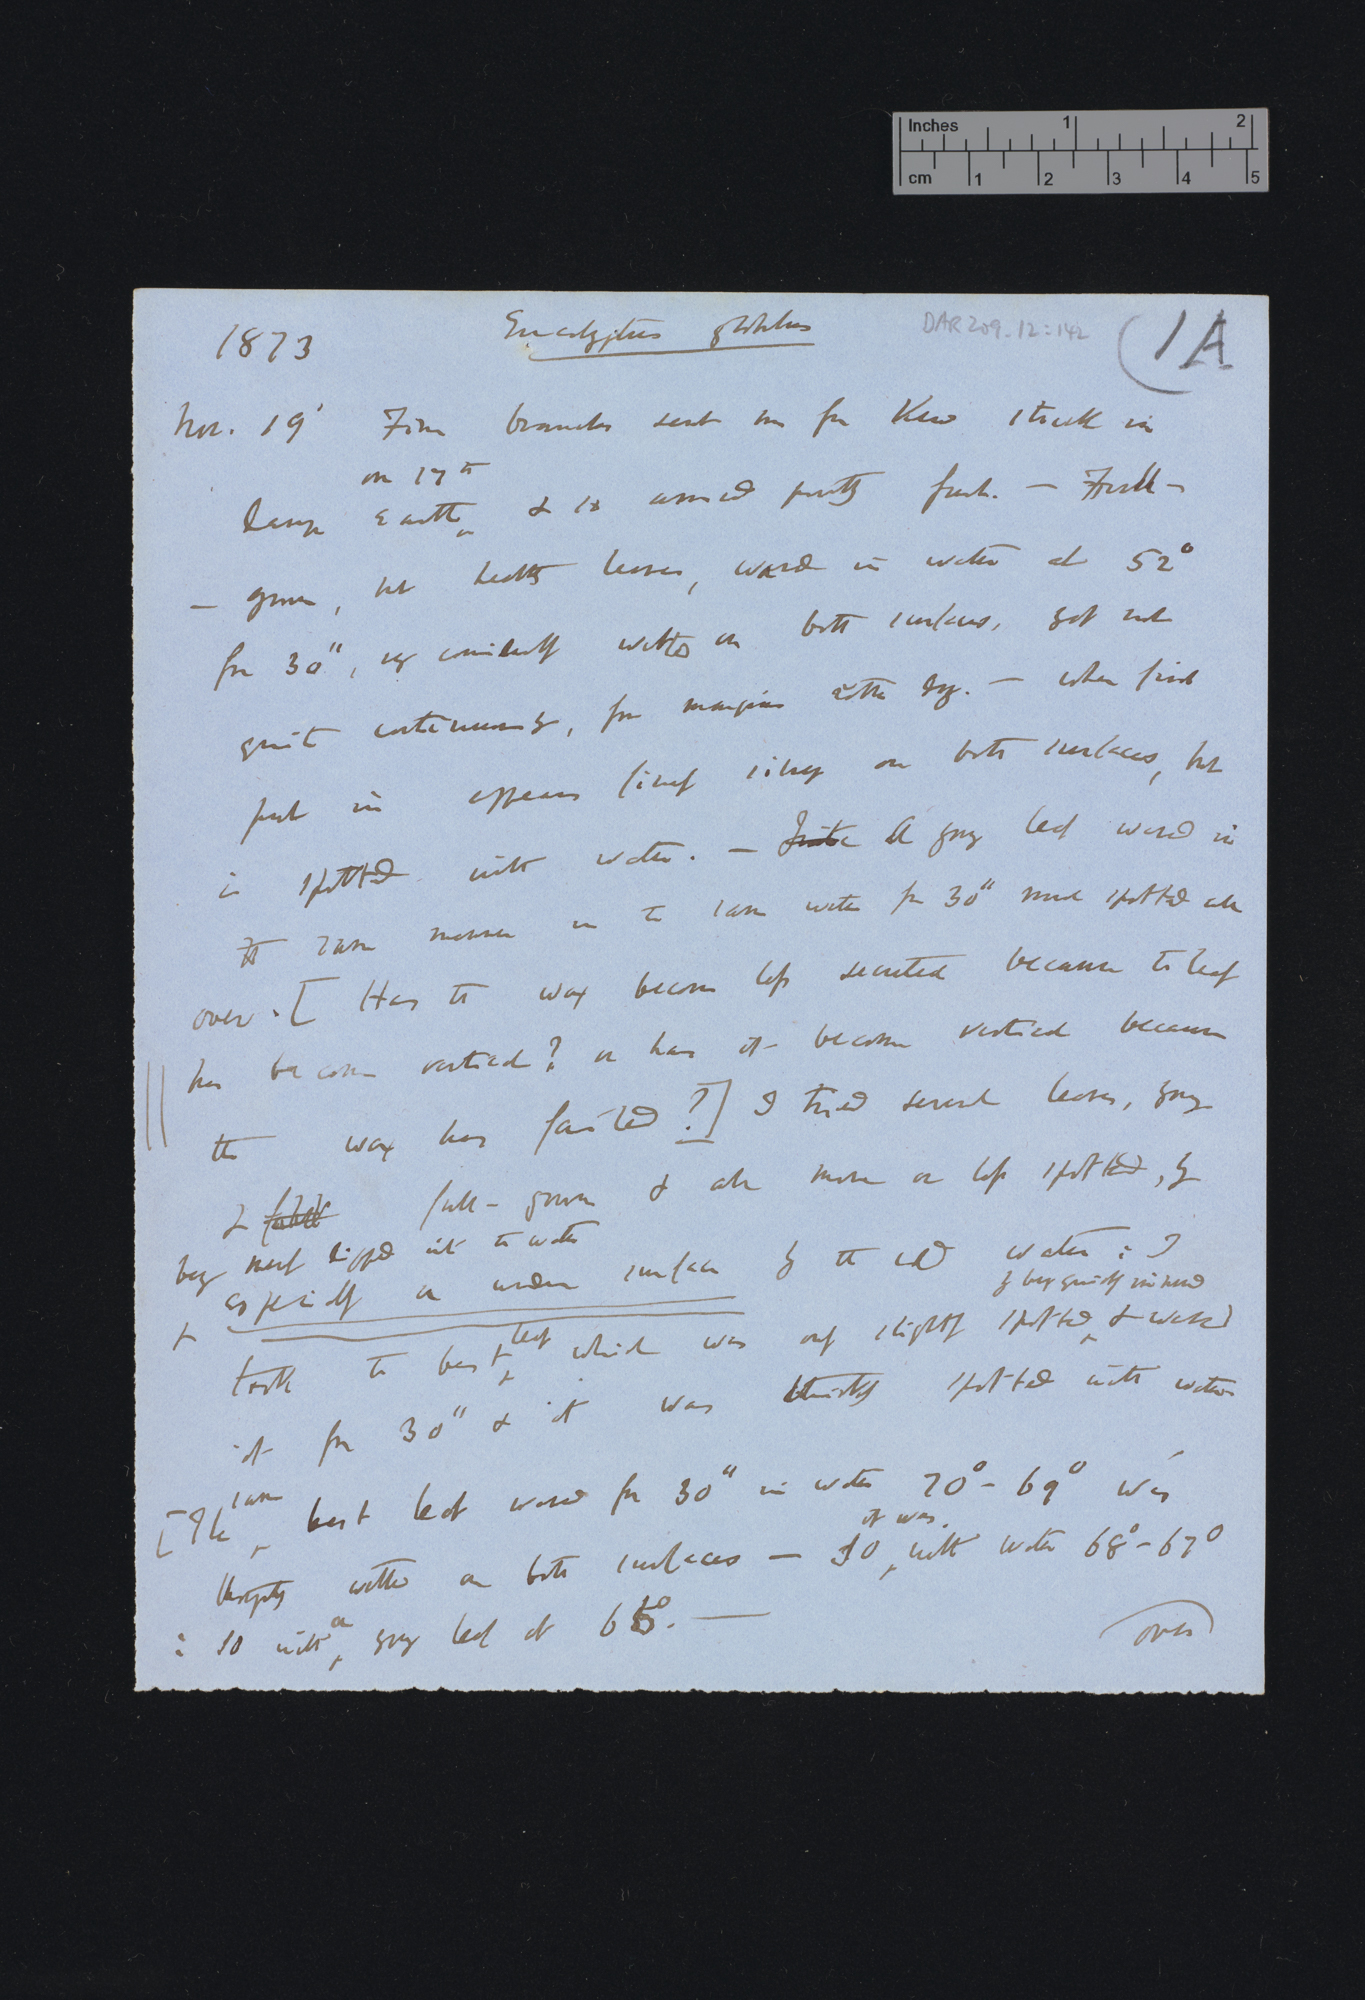 Inches 1 2
cm 1 2 3 4 5
1873 Eucalyptus globulus DAR 209.12:142 (1A
Nov. 19' Fine branches sent me from Kew stuck in
on 17th
damp earth & so arrived pretty fresh. — Full-
— grown, but healthy leaves, waved in water at 52°
for 30", very considerably wetted on both surfaces, yet not
quite continuously, for margins rather dry. — when first
put in appears finely silvery on both surfaces, but
is spotted with water. — A young leaf waved in
the same manner in the same water for 30" much spotted all
over. [ Has the wax become less secreted because the leaf
has become vertical? or has it become vertical because
the wax has failed?] I tried several leaves, young
& full-grown & all more or less spotted, by
being merely dipped into the water
especially on under surface by the cold water: I
by being quickly immersed
took the best leaf which was only slightly spotted & waved
it for 30" & it was thickly spotted with water
same
[The best leaf waved for 30" in water 70°–69° was
it was
wetted on both surfaces — So with water 68°–67°
a
: So with young leaf at 65°. —
over